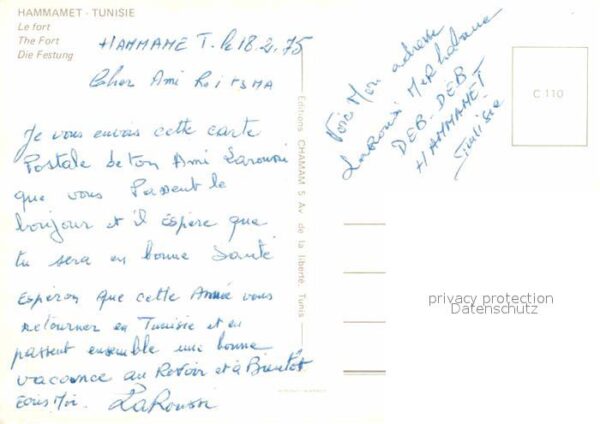 HAMMAMET - TUNISIE
Le fort
The Fort
Die Festung
HAMMAME T. le 18.2.75
Cher Ami
Je vous envois cette carte
Postale de ton Ami Laroussi
que vous Passent le
bonjour et il Espère que
tu sera en bonne Santé
Espéron que cette Année vous
retourner en Tunisie et en
passent ensemble une bonne
vacance au Revoir et à Bientôt
Ecris Moi. LaRoussi
Editions CHAMAM 5 Av. de la liberté. Tunis
Voie Mon adresse
LaRoussi
DEB-DEB
HAMMAMET
Tunisie
C 110
privacy protection
Datenschutz